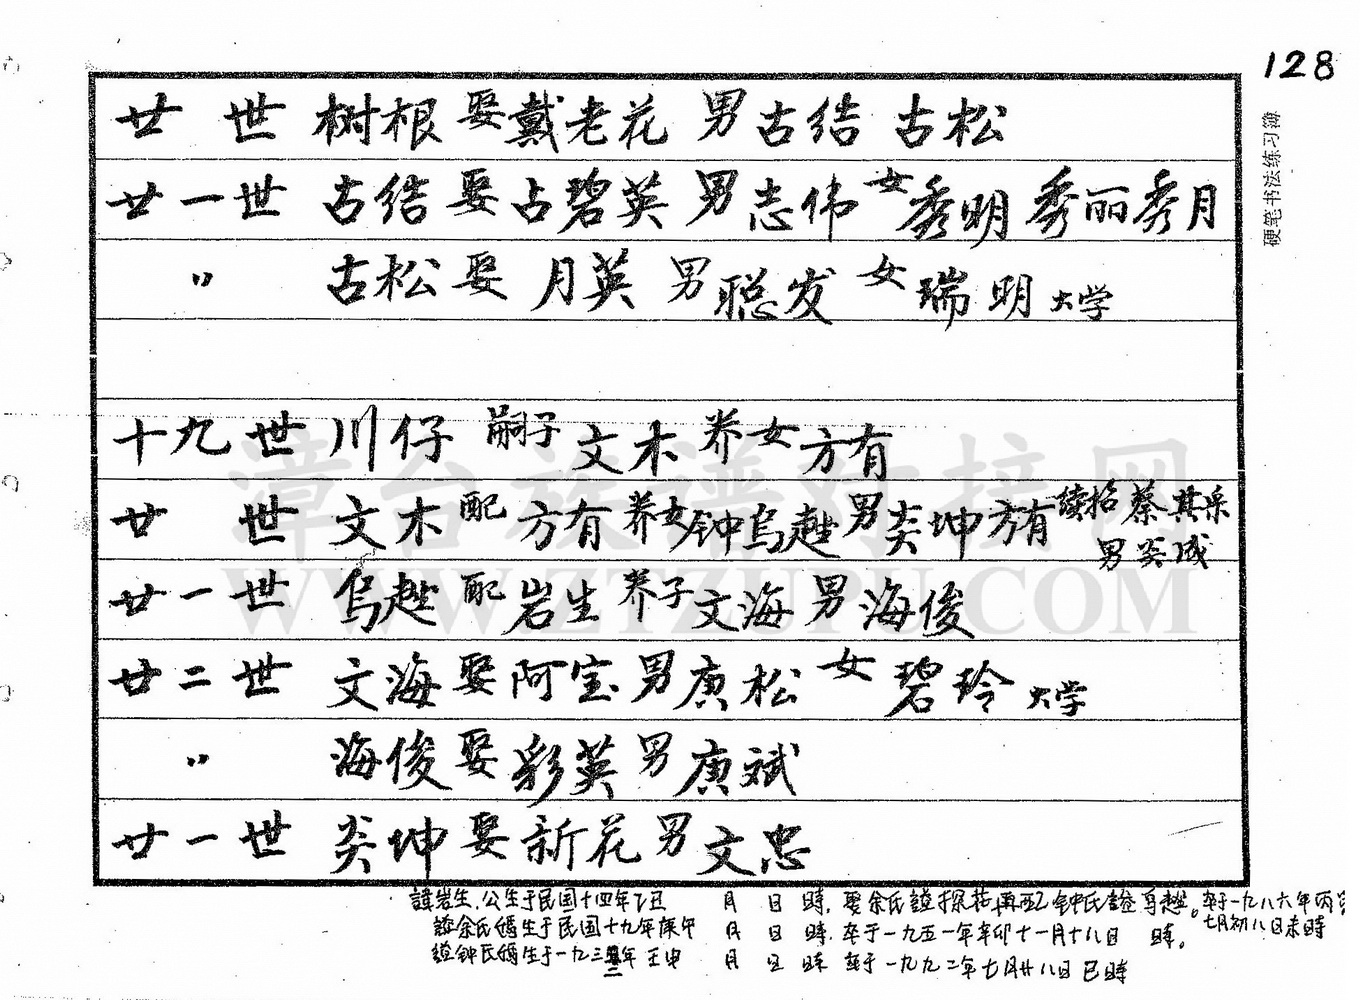 128
硬笔书法练习簿
廿 世 树根 娶戴老花 男古结 古松
廿一世 古结 娶占碧英 男志伟 女秀明 秀丽秀月
〃 古松娶 月英 男聪发 女瑞明大学
十九世川仔 嗣子文木 养女方有
廿 世 文木配 方有养女钟乌趖男炎坤方有续招蔡其采
男炎成
廿一世 乌趖配岩生养子文海男海俊
廿二世 文海娶阿宝男庚松 女碧玲大学
〃 海俊娶彩英男庚斌
廿一世 炎坤娶新花男文忠
漳台族谱对接网
WWW.ZTZUPU.COM
諱岩生.公生于民国十四年乙丑 月 日 時,娶余氏諡探花,再配钟氏諡乌趖。卒于一九八六年丙寅
七月初八日未時
諡余氏媽生于民国十九年庚午 月 日 時.卒于一九五一年辛卯十一月十八日 時。
諡钟氏媽生于一九三二年壬申 月 日 時 卒于一九九二年七月廿八日巳時